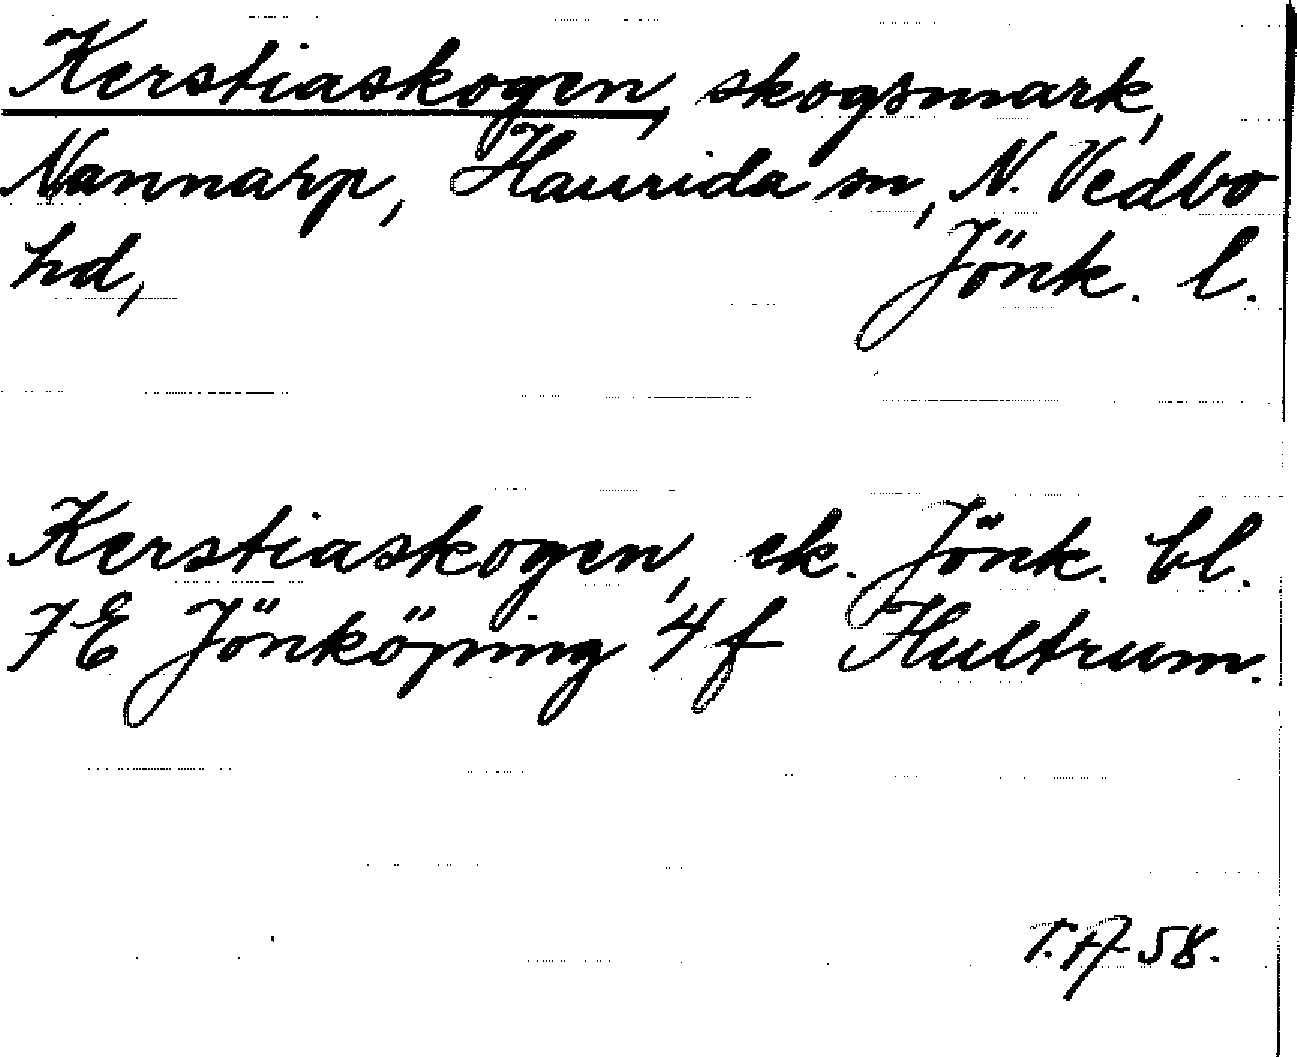 Kerstiaskogen, skogsmark,
Nannarp, Haurida sn, N. Vedbo
hd, Jönk. l.
Kerstiaskogen, ek. Jönk. bl.
7E Jönköping 4f Hultrum.
T.A. 58.